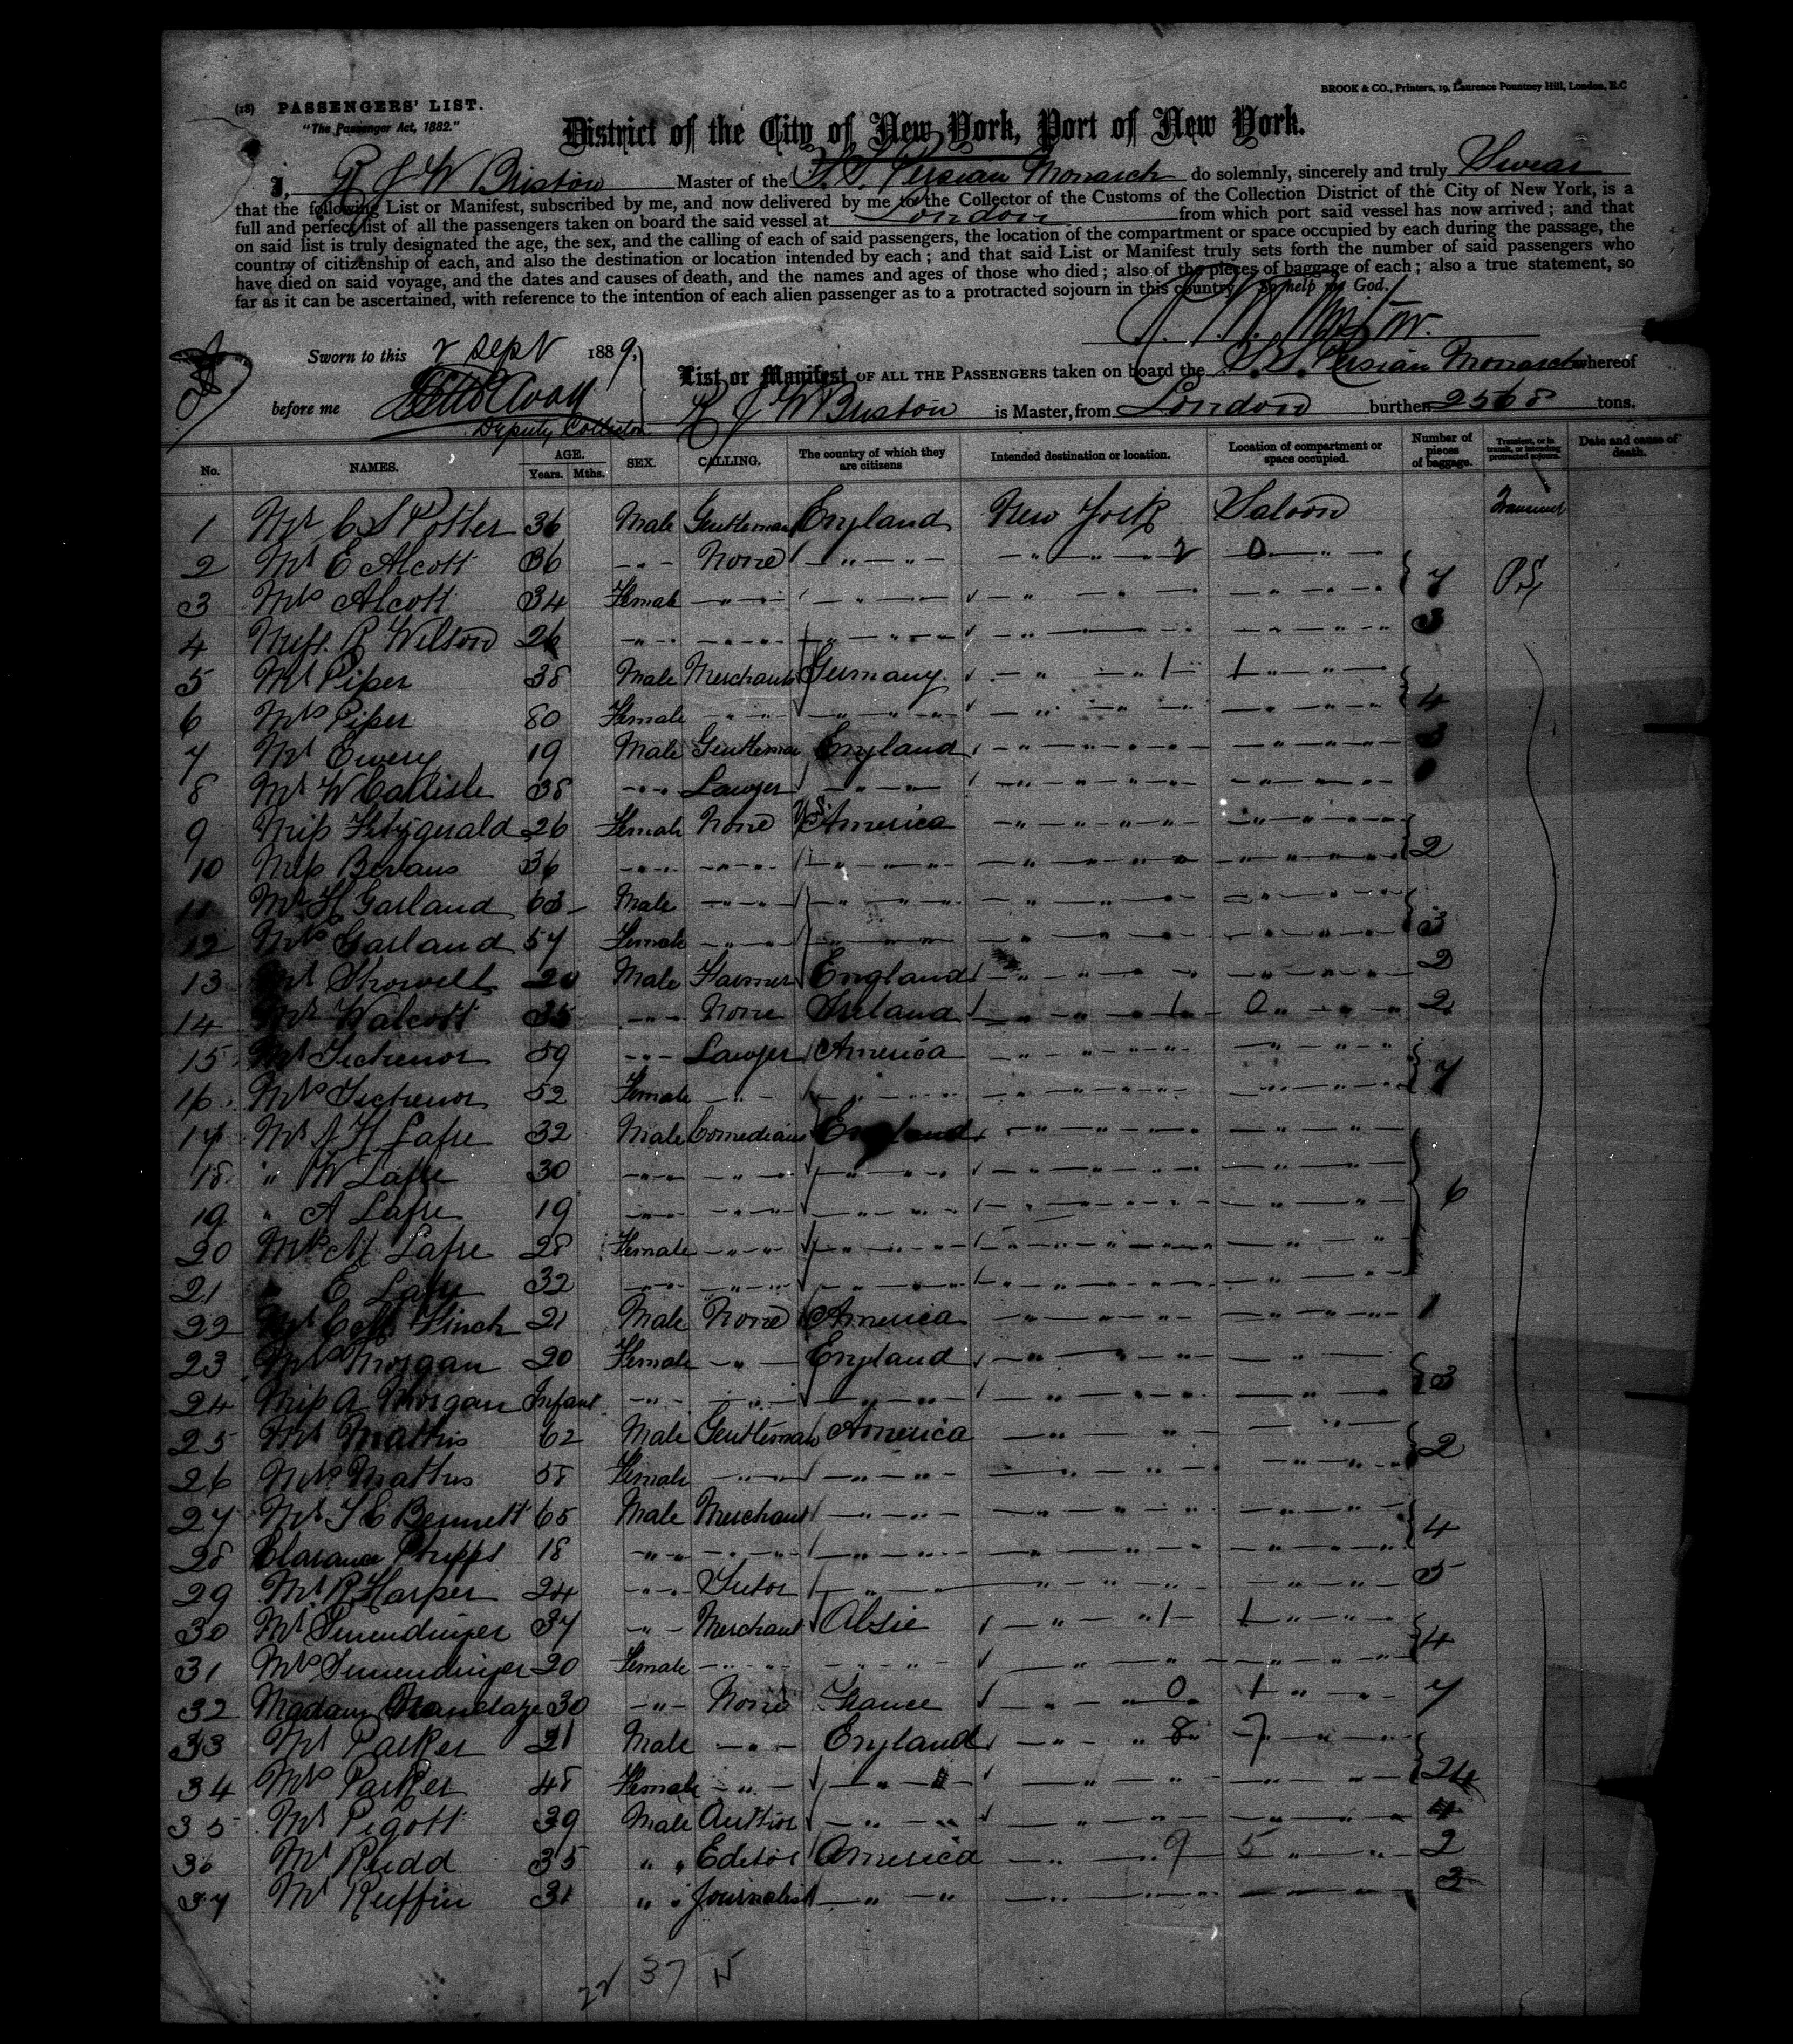 (18) PASSENGERS' LIST.
"The Passenger Act, 1882."
BROOK & CO., Printers, 19, Laurence Pountney Hill, London, E.C
District of the City of New York, Port of New York.
I, R J W Bristow Master of the S.S. Persian Monarch do solemnly, sincerely and truly Swear
that the following List or Manifest, subscribed by me, and now delivered by me to the Collector of the Customs of the Collection District of the City of New York, is a
full and perfect list of all the passengers taken on board the said vessel at London from which port said vessel has now arrived; and that
on said list is truly designated the age, the sex, and the calling of each of said passengers, the location of the compartment or space occupied by each during the passage, the
country of citizenship of each, and also the destination or location intended by each; and that said List or Manifest truly sets forth the number of said passengers who
have died on said voyage, and the dates and causes of death, and the names and ages of those who died; also of the pieces of baggage of each; also a true statement, so
far as it can be ascertained, with reference to the intention of each alien passenger as to a protracted sojourn in this country. So help me God.
Sworn to this 2 Sept 1889,
before me
Deputy Collector
List or Manifest OF ALL THE PASSENGERS taken on board the S.S. Persian Monarch whereof
R J W Bristow is Master, from London burthen 2568 tons.
No. NAMES. AGE. Years. Mths. SEX. CALLING. The country of which they are citizens Intended destination or location. Location of compartment or space occupied. Number of pieces of baggage. Transient, or in transit, or intending protracted sojourn. Date and cause of death.
1 Mr C S Potter 36 Male Gentleman England New York Saloon Transient
2 Mr E Alcott 36 -"- None -"-"- -"-"- 2 0 -"-
3 Mrs Alcott 34 Female -"- -"- -"-"- -"-"- 7 P.S.
4 Miss R Wilson 26 -"- -"- -"-"- -"-"- -"-"- 3
5 Mr Piper 38 Male Merchant Germany -"-"- -"-"-
6 Mrs Piper 80 Female -"- -"-"- -"-"- -"-"- 4
7 Mr Emery 19 Male Gentleman England -"-"- -"-"- 3
8 Mr W Carlisle 38 -"- Lawyer -"-"- -"-"- -"-"-
9 Miss Fitzgerald 26 Female None U.S. America -"-"- -"-"-
10 Miss Bevans 36 -"- -"- -"-"- -"-"- -"-"- 2
11 Mr H Garland 63 Male -"- -"-"- -"-"- -"-"-
12 Mrs Garland 57 Female -"- -"-"- -"-"- -"-"- 3
13 Mr Showell 20 Male Farmer England -"-"- -"-"- 2
14 Mr Walcott 35 -"- None Ireland -"-"- 1 0 -"- 2
15 Mr Tichenor 59 -"- Lawyer America -"-"- -"-"-
16 Mrs Tichenor 52 Female -"- -"-"- -"-"- -"-"- 7
17 Mr A H Lafre 32 Male Comedian England -"-"- -"-"-
18 " W Lafre 30 -"- -"- -"-"- -"-"- -"-"-
19 " A Lafre 19 -"- -"- -"-"- -"-"- -"-"- 6
20 Mrs M Lafre 28 Female -"- -"-"- -"-"- -"-"-
21 " E Lafre 32 -"- -"- -"-"- -"-"-
22 Mr Finch 21 Male None America -"-"- -"-"- 1
23 Mrs Morgan 20 Female -"- England -"-"- -"-
24 Miss A Morgan Infant -"- -"- -"-"- -"-"- -"-"- 3
25 Mr Mathis 62 Male Gentleman America -"-"- -"-"-
26 Mrs Mathis 58 Female -"- -"-"- -"-"- -"-"- 2
27 Mr S C Bennett 65 Male Merchant -"-"- -"-"- -"-"-
28 Clarance Phipps 18 -"- -"- -"-"- -"-"- -"-"- 4
29 Mr R Harper 24 -"- Tutor -"- -"-"- -"-"- 5
30 Mr Smendinger 37 -"- Merchant -"-"- -"-"-
31 Mrs Smendinger 20 Female -"- -"-"- -"-"- -"-"- 4
32 Madam 30 -"- None France -"- 0 -"-"- 7
33 Mr Parker 21 Male -"- England -"-"- 8 7 -"-
34 Mrs Parker 48 Female -"- -"-"- -"-"- -"-"- 24
35 Mr Pigott 39 Male Author -"-"- -"-"- -"-"- 4
36 Mr Rudd 35 " " Editor America -"- 9 5 -"- 2
37 Mr Ruffin 31 " " Journalist -"-"- -"-"- -"-"- 3
22 37 15